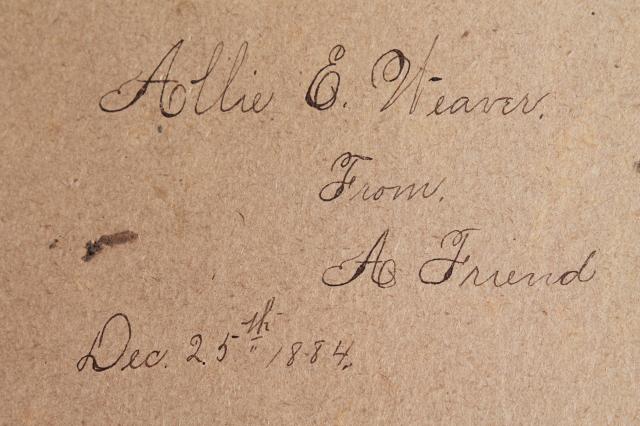 Allie E. Weaver.
From.
A Friend
Dec. 25th 1884.